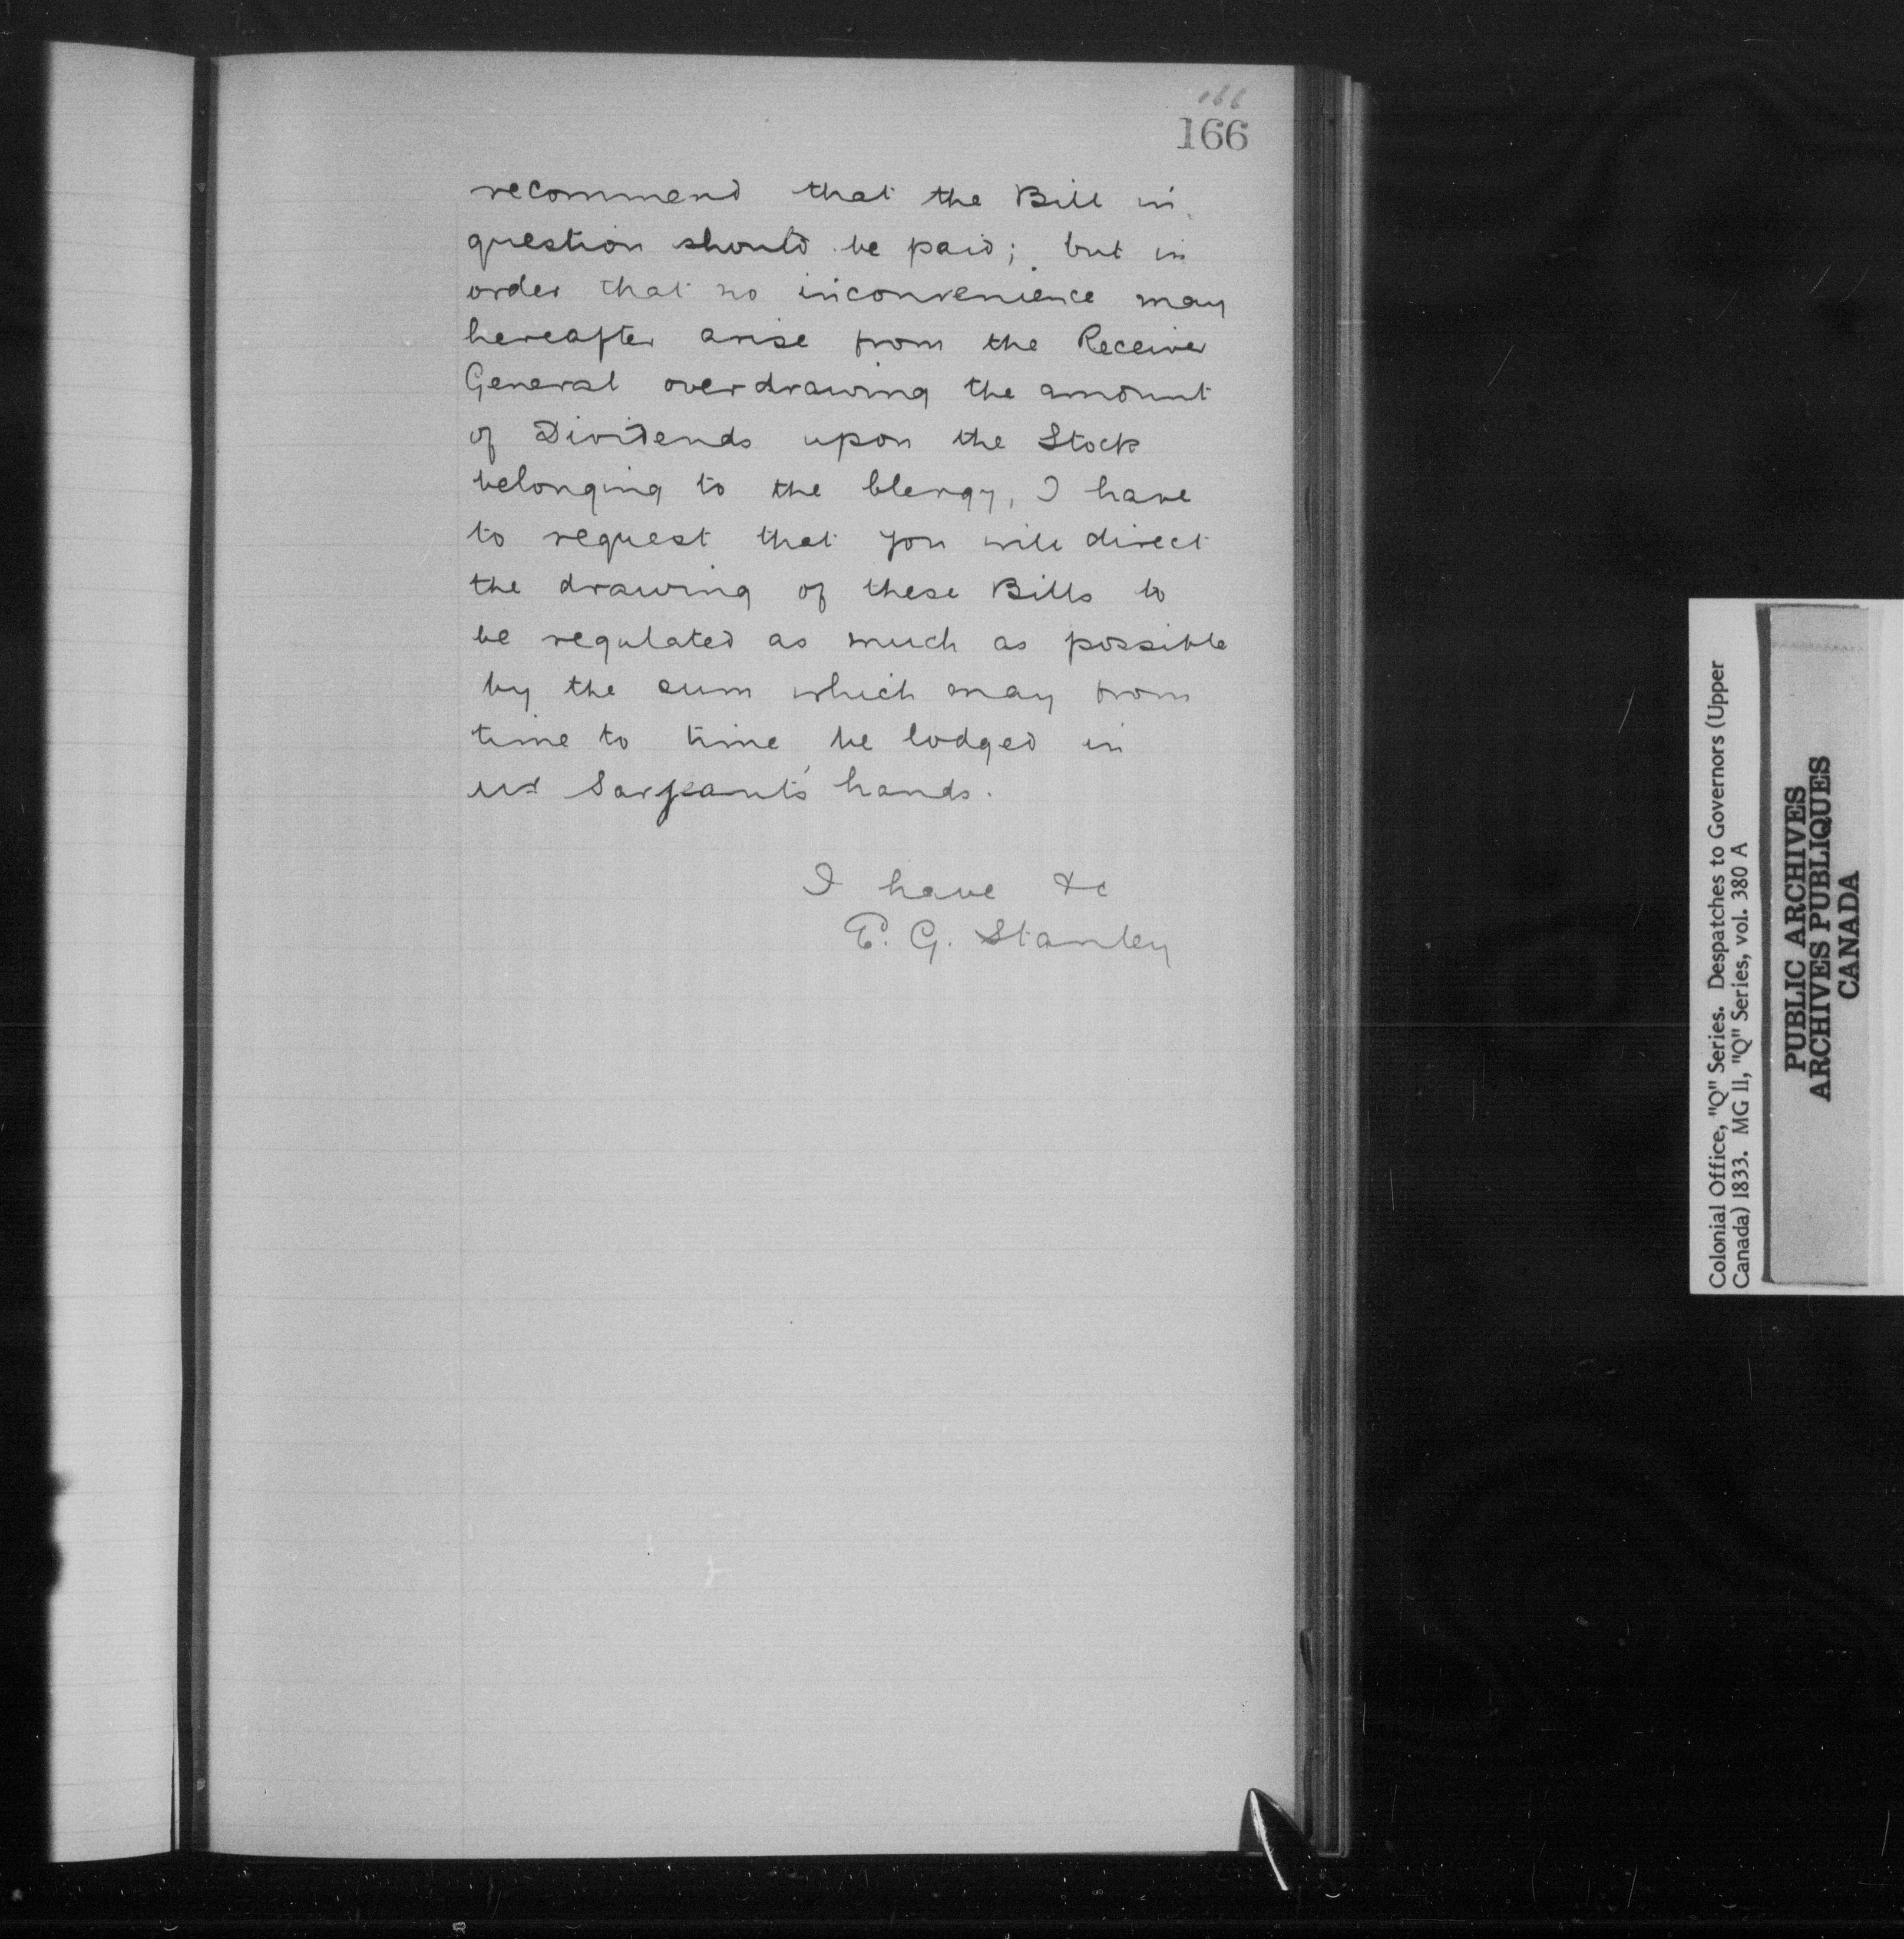 166
166
recommend that the Bill in
question should be paid; but in
order that no inconvenience may
hereafter arise from the Receiver
General overdrawing the amount
of Dividends upon the Stock
belonging to the Clergy, I have
to request that you will direct
the drawing of these Bills to
be regulated as much as possible
by the sum which may from
time to time, be lodged in
Mr Sargeant's hands.
I have &c
E. G. Stanley
Colonial Office, "Q" Series. Despatches to Governors (Upper
Canada) 1833. MG 11, "Q" Series, vol. 380 A
PUBLIC ARCHIVES
ARCHIVES PUBLIQUES
CANADA